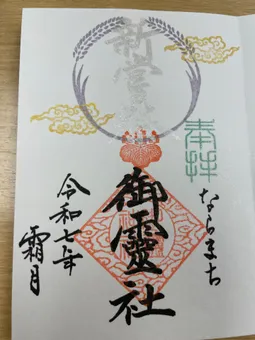 新嘗祭
奉拝
ならまち
御靈社
令和七年
霜月